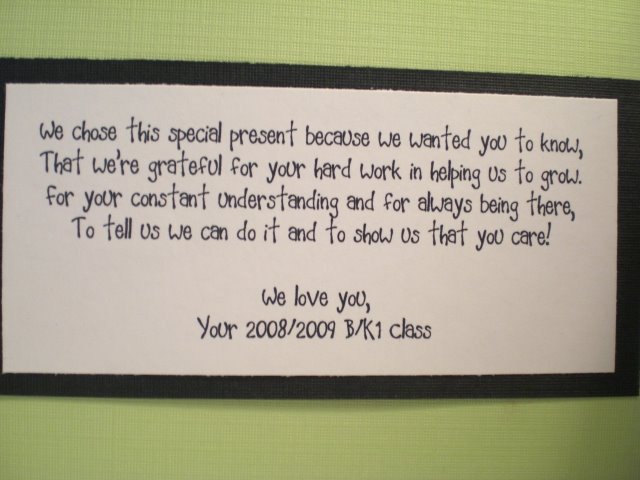 We chose this special present because we wanted you to know,
That we're grateful for your hard work in helping us to grow.
For your constant understanding and for always being there,
To tell us we can do it and to show us that you care!
We love you,
Your 2008/2009 B/K1 class